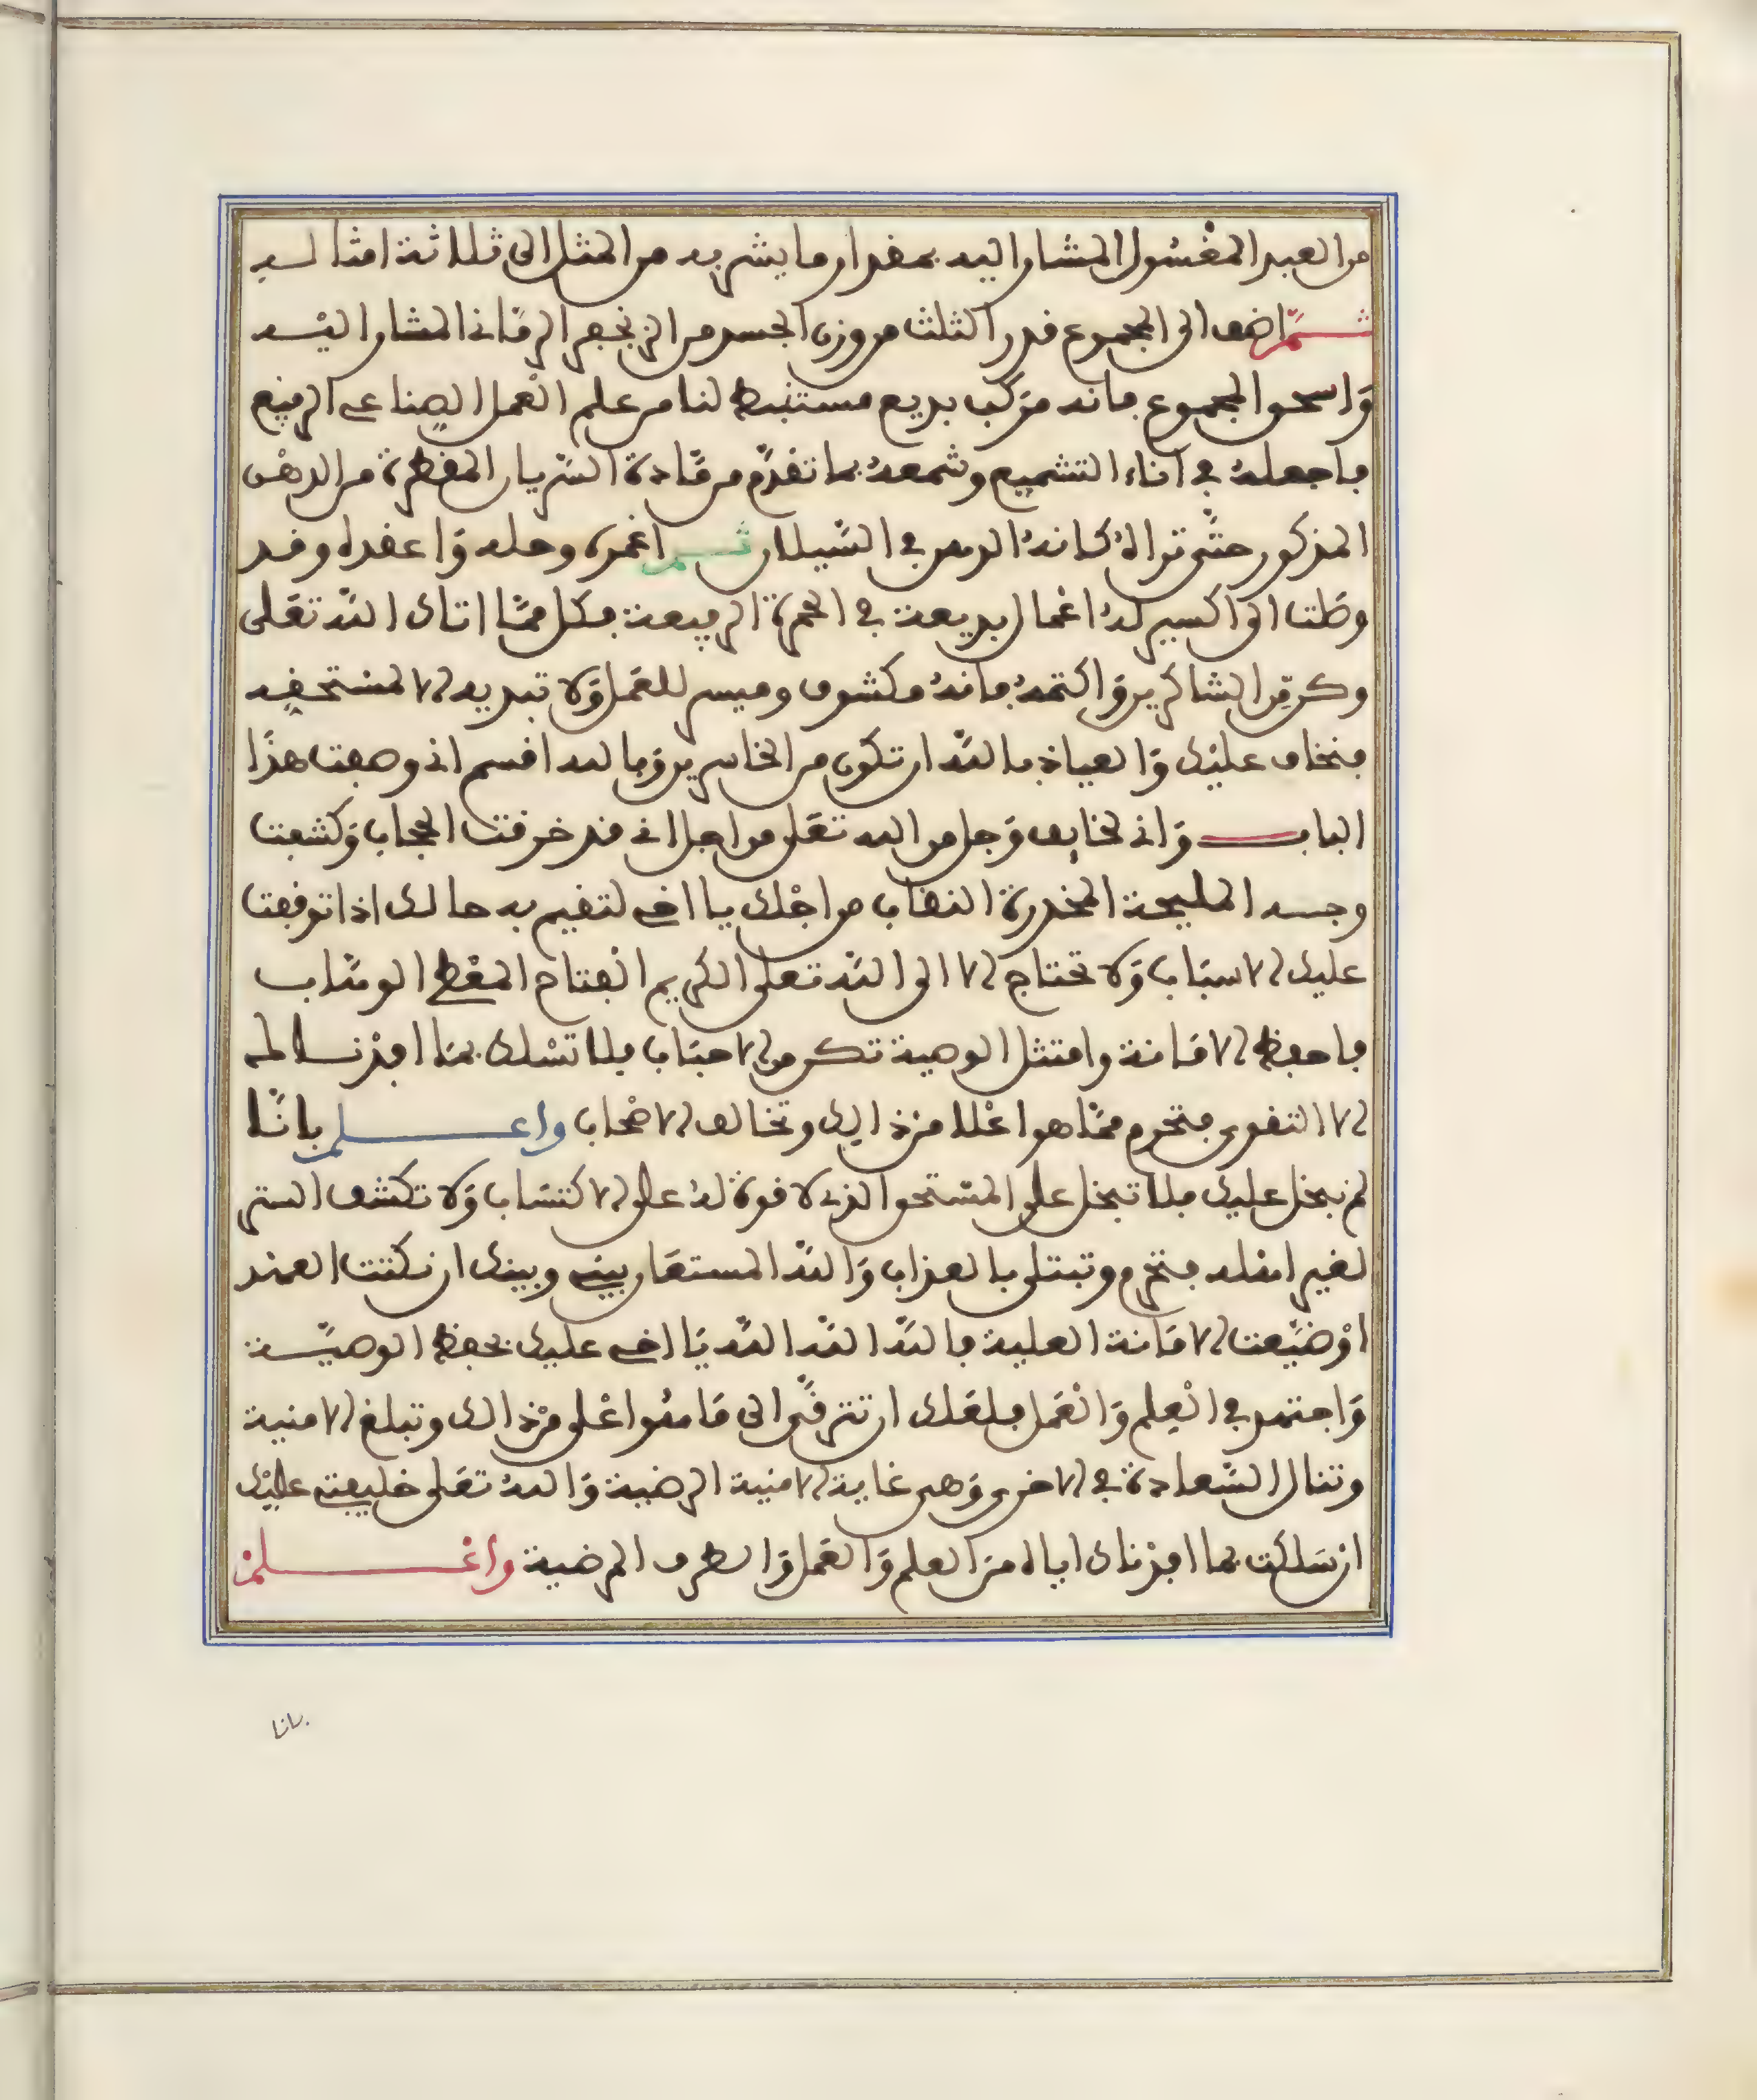 من العبد المغسول المشار اليه بمقدار ما يشربه من المثل الى ثلاثة امثاله
ثم اضف الى المجموع قدر الثلث من وزن الجسد من الزنجفر الرماني المشار اليه
واسحق المجموع فانه مركب بديع مستنبط لنا من علم العمل الصناعي الرفيع
فاجعله في اناء التشميع وشمعه بما تقدم من مادة السريان المقطرة من الدهن
المذكور حتى تراه كانه الدهن في السيلان ثم اغمره وحله واعقده وقد
وصلت الى اكسير له اعمال بديعة في الحمرة الرفيعة فكل مما اتاك الله تعلى
وكن من الشاكرين واكتمه فانه مكشوف وميسر للعمل ولا تبديه الا لمستحقه
فنخاف عليك والعياذ بالله ان تكون من الخاسرين وبالله اقسم اني وضعت هذا
الباب واني لخايف وجل من الله تعلى من اجل اني قد خرقت الحجاب وكشفت
وجه المليحة المخدرة النقاب من اجلك يا اخي لتقيم به حالك اذا توقفت
عليك الاسباب ولا تحتاج الا الى الله تعلى الكريم الفتاح المعطي الوهاب
فاحفظ الامانة وامتثل الوصية تكن من الاحباب فلا تسلك بما افدنا له
الا التقوى فتحرم مما هو اعلا من ذالك وتخالف الاصحاب واعلم باننا
لم نبخل عليك فلا تبخل على المستحق الذي لا قوة له على الاكتساب ولا تكشف الستر
لغير اهله فتحرم وتبتلى بالعذاب والله المستعان بيني وبينك ان نكثت العهد
او ضيعت الامانة العلية فالله الله الله يا اخي عليك بحفظ الوصية
واجتهد في العلم والعمل فلعلك ان تترقى الى ما هو اعلى من ذالك وتبلغ الامنية
وتنال السعادة في الاخرى وهي غاية الامنية الرضية والله تعلى خليفتي عليك
ان سلكت بما افدناك اياه من العلم والعمل والطرق المرضية واعلم
بانا